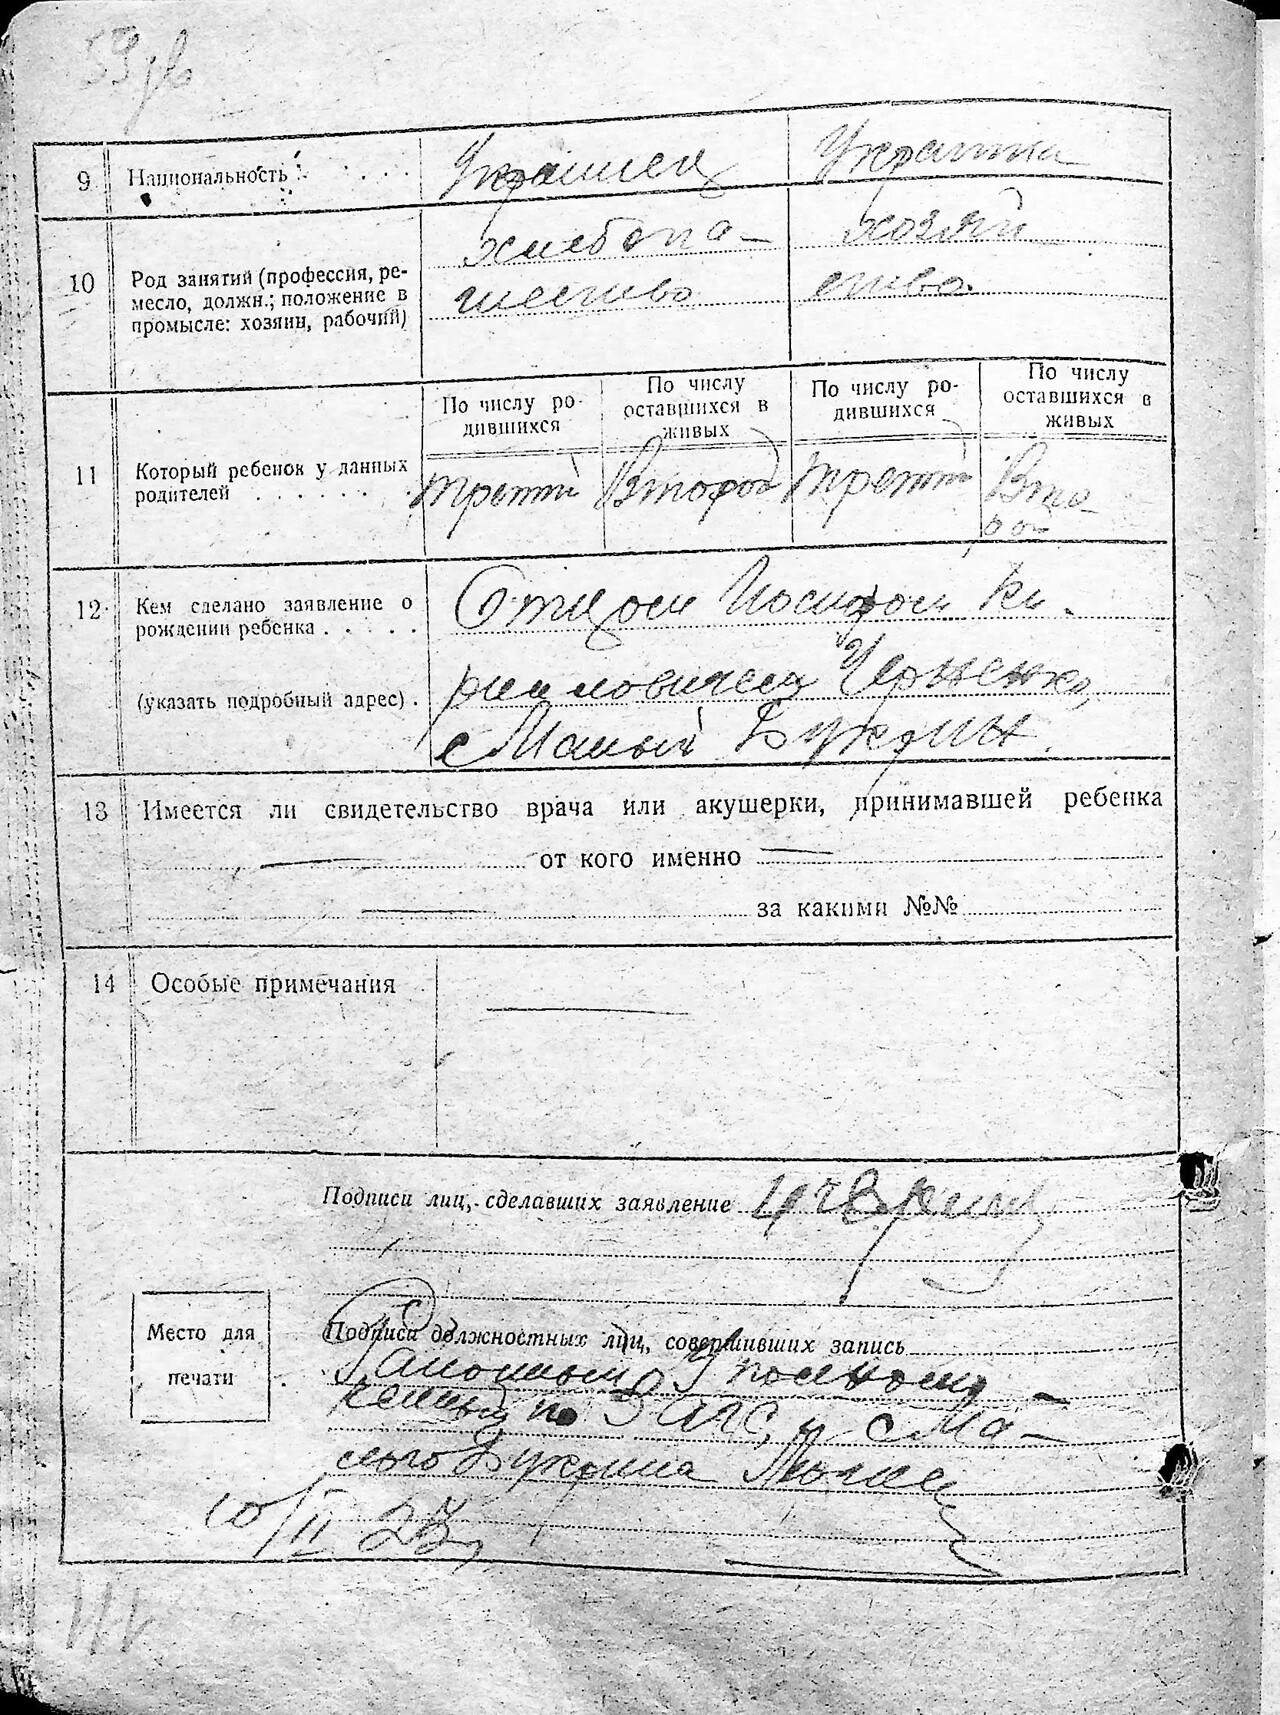 9 Национальность . . . . Украинец Украинка
10 Род занятий (профессия, ре-
месло, должн.; положение в
промысле: хозяин, рабочий)
хлебопа-
шество
хозяй
ство.
11 Который ребенок у данных
родителей . . . . . . .
По числу ро-
дившихся
По числу
оставшихся в
живых
По числу ро-
дившихся
По числу
оставшихся в
живых
третий Второй третий Вто-
рой
12 Кем сделано заявление о
рождении ребенка . . . . .
(указать подробный адрес) .
Отцом Иосифом Ки-
рилловичем Черненко,
с Малый Букрин.
13 Имеется ли свидетельство врача или акушерки, принимавшей ребенка
от кого именно
за какими №№
14 Особые примечания
Подписи лиц, сделавших заявление
Место для
печати
Подписи должностных лиц, совершивших запись
Районный Уполномо-
ченный по ЗАГС, с Ма-
лого Букрина
10/II 23